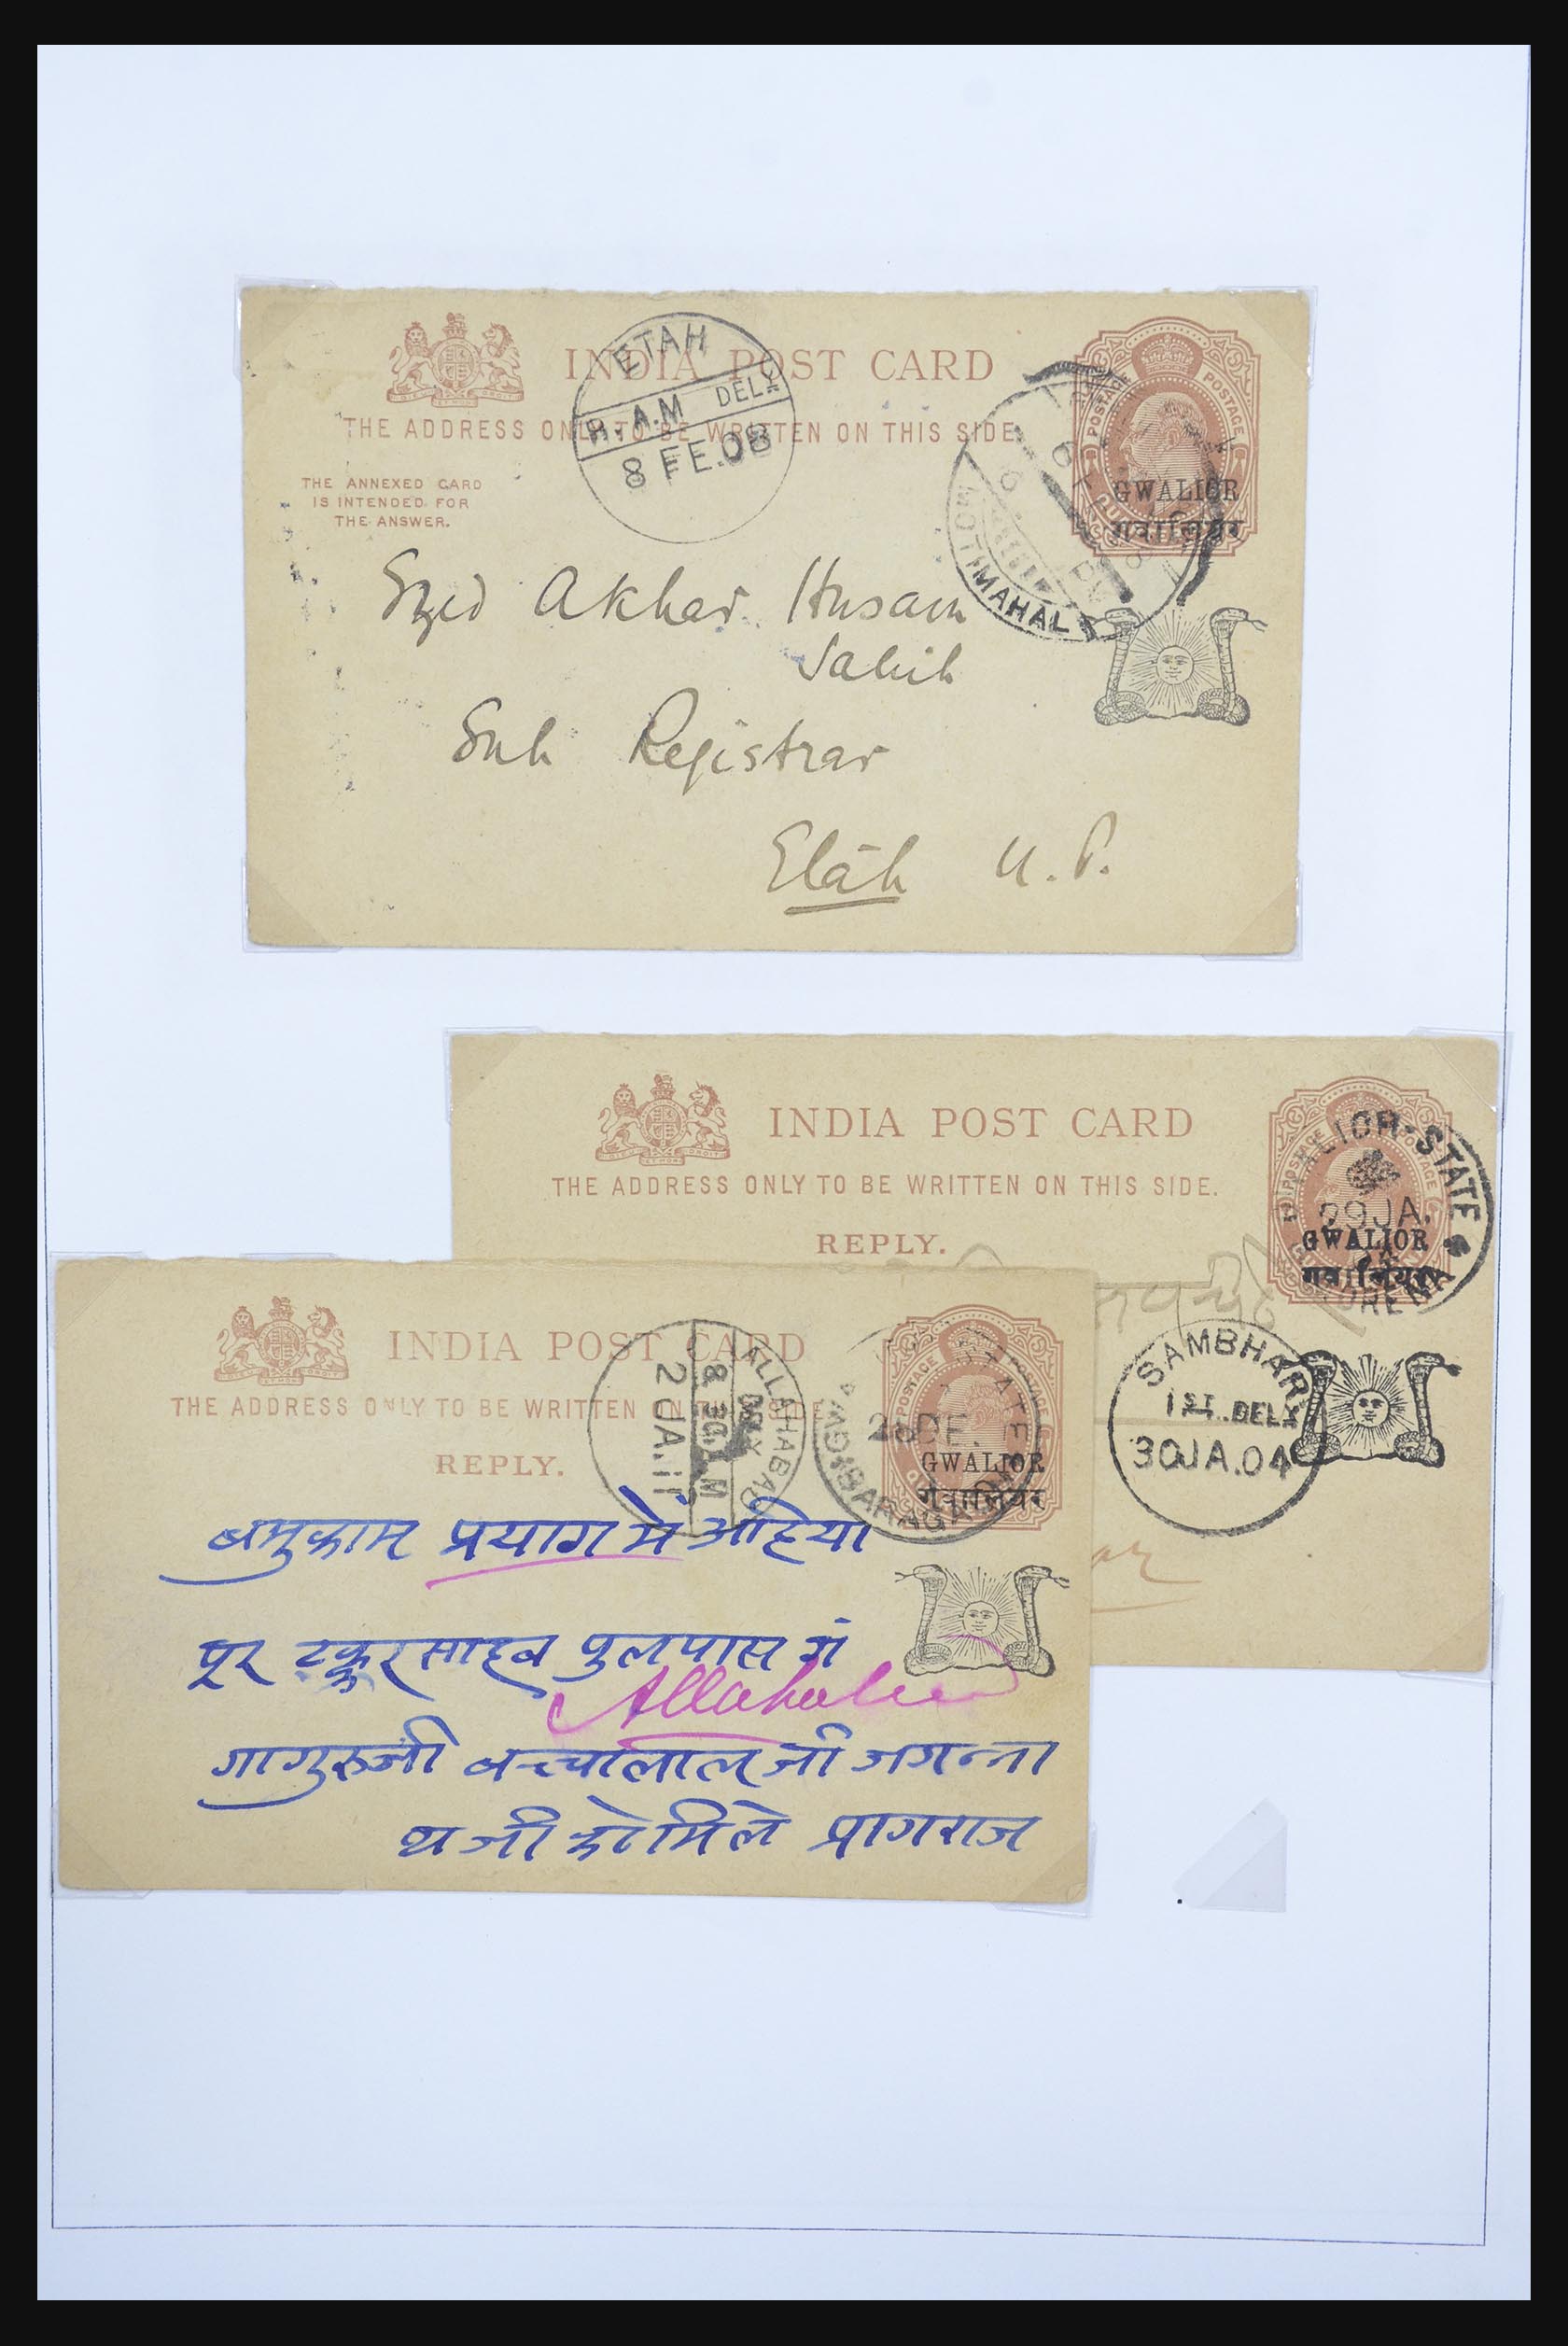 INDIA POST CARD
THE ADDRESS ONLY TO BE WRITTEN ON THIS SIDE.
THE ANNEXED CARD
IS INTENDED FOR
THE ANSWER.
ETAH
A.M DELY
8 FE.08
POSTAGE
POSTAGE
GWALIOR
गवालियर
MOTIMAHAL
Syed Akhar Husain
Sahib
Sub Registrar
Etāh U.P.
INDIA POST CARD
THE ADDRESS ONLY TO BE WRITTEN ON THIS SIDE.
REPLY.
LIOR-STATE
29JA.
GWALIOR
गवालियर
SAMBHAR
1ST. DELY
30JA.04
INDIA POST CARD
THE ADDRESS ONLY TO BE WRITTEN ON SIDE
REPLY.
ALLAHABAD
DELY
8.30 M
2JA.11
POSTAGE
POSTAGE
STATE
DE.
GWALIOR
गवालियर
बमुकाम प्रयाग में अहिया
पूर ठक्कुरसाहब पुलपास गं
Allahabad
गागुरुजी बच्चालाल जी जगन्ना
थ जी को मिले प्रागराज